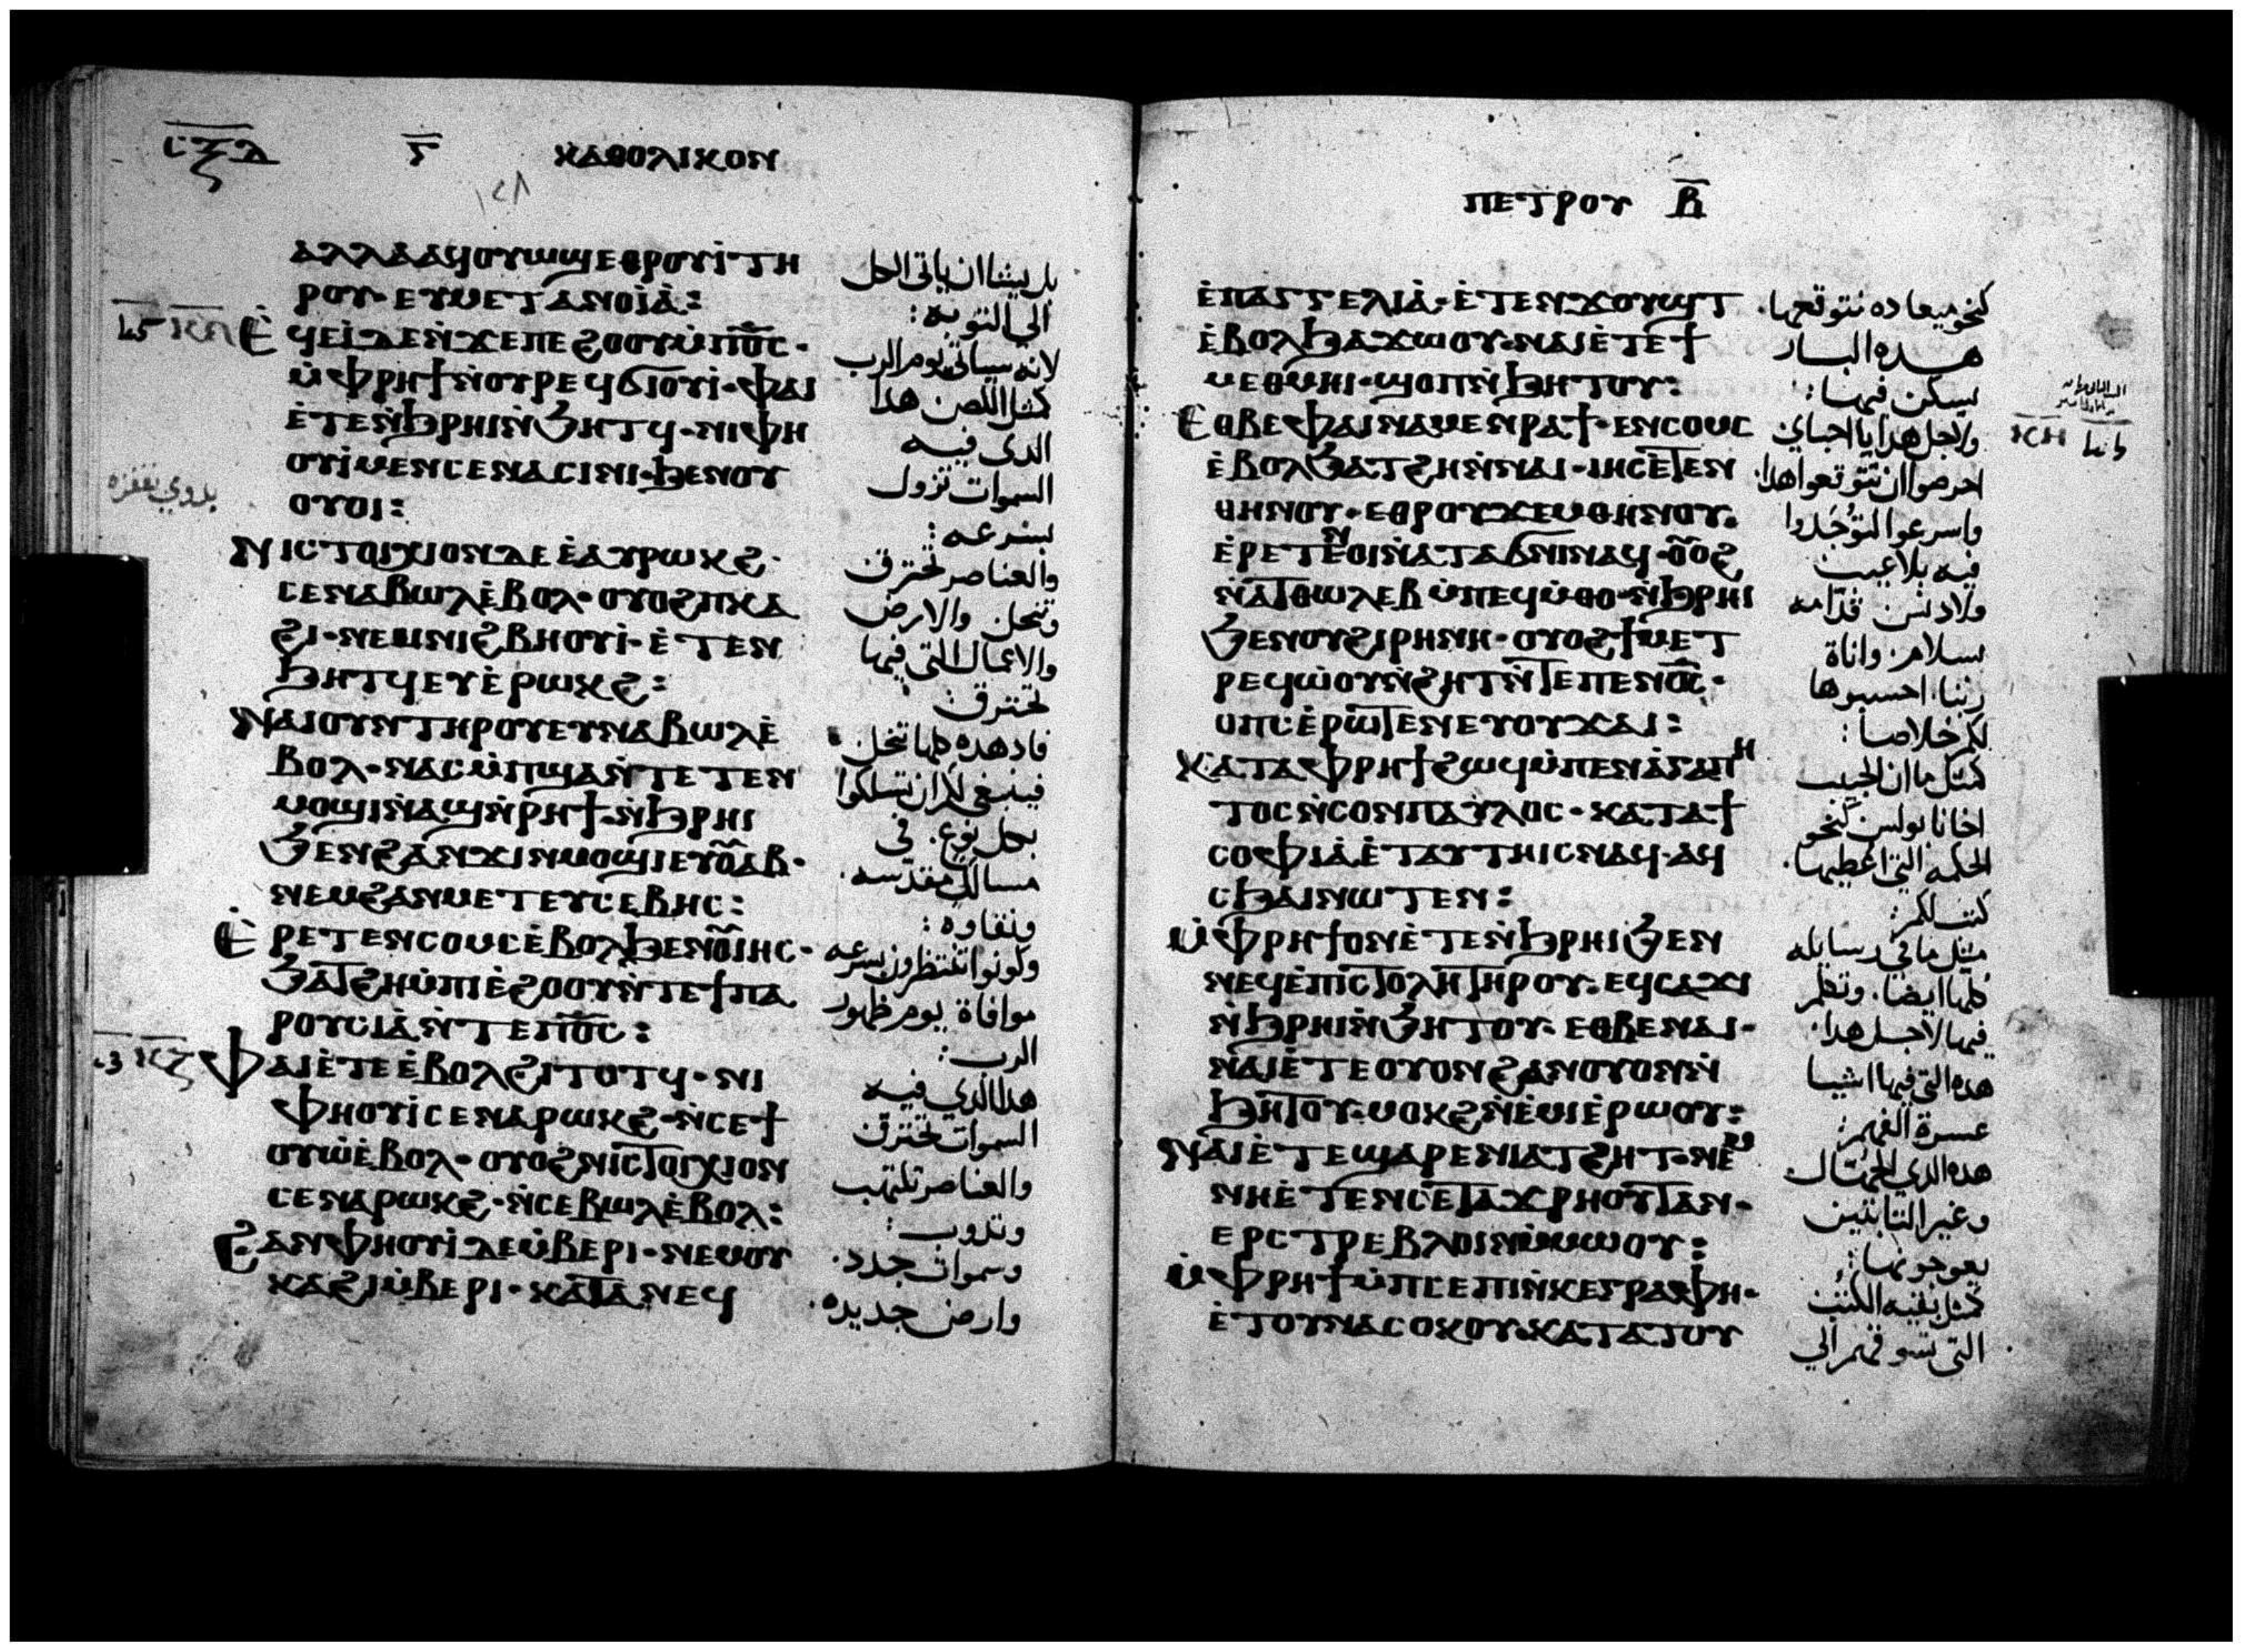 ⲅ̅ ⲕⲁⲑⲟⲗⲓⲕⲟⲛ
ⲁⲗⲗⲁⲁϥⲟⲩⲱϣⲉⲑⲣⲟⲩⲓ̀ⲧⲏ
ⲣⲟⲩ· ⲉⲩⲙⲉⲧⲁⲛⲟⲓⲁ̀:
ⲉ̀ϥⲉⲓ̀ⲇⲉⲛ̀ϫⲉⲡⲉϩⲟⲟⲩⲙ̀ⲡⲟ̅ⲥ̅·
ⲙ̀ⲫⲣⲏϯⲛ̀ⲟⲩⲣⲉϥϭⲓⲟⲩⲓ̀· ⲫⲁⲓ
ⲉ̀ⲧⲉⲛ̀ϧⲣⲏⲓⲛ̀ϧⲏⲧϥ· ⲛⲓⲫⲏ
ⲟⲩⲓ̀ⲙⲉⲛⲥⲉⲛⲁⲥⲓⲛⲓ· ϧⲉⲛⲟⲩ
ⲟⲩⲟⲓ:
ⲛⲓⲥⲧⲟⲓⲭⲓⲟⲛⲇⲉⲉ̀ⲁⲩⲣⲱⲕϩ·
ⲥⲉⲛⲁⲃⲱⲗⲉ̀ⲃⲟⲗ· ⲟⲩⲟϩⲡⲕⲁ
ϩⲓ· ⲛⲉⲙⲛⲓϩⲃⲏⲟⲩⲓ̀· ⲉ̀ⲧⲉⲛ
ϧⲏⲧϥⲉⲩⲉ̀ⲣⲱⲕϩ:
ⲛⲁⲓⲟⲩⲛⲧⲏⲣⲟⲩⲉⲩⲛⲁⲃⲱⲗⲉ̀
ⲃⲟⲗ· ⲛⲁⲥⲙ̀ⲡϣⲁⲛ̀ⲧⲉⲧⲉⲛ
ⲙⲟϣⲓⲛ̀ⲁϣⲛ̀ⲣⲏϯ· ⲛ̀ϧⲣⲏⲓ
ϧⲉⲛϩⲁⲛϫⲓⲛⲙⲟϣⲓⲉⲩⲟ̅ⲁⲃ·
ⲛⲉⲙϩⲁⲛⲙⲉⲧⲉⲩⲥⲉⲃⲏⲥ:
ⲉ̀ⲣⲉⲧⲉⲛⲥⲟⲙⲥⲉ̀ⲃⲟⲗϧⲉⲛⲟ̅ⲓⲏⲥ·
ϧⲁⲧϩⲏⲙ̀ⲡⲓⲉ̀ϩⲟⲟⲩⲛ̀ⲧⲉϯⲡⲁ
ⲣⲟⲩⲥⲓⲁ̀ⲛ̀ⲧⲉⲡⲟ̅ⲥ̅:
ⲫⲁⲓⲉ̀ⲧⲉⲉ̀ⲃⲟⲗϩⲓⲧⲟⲧϥ· ⲛⲓ
ⲫⲏⲟⲩⲓ̀ⲥⲉⲛⲁⲣⲱⲕϩ· ⲛ̀ⲥⲉϯ
ⲟⲩⲱ̀ⲉ̀ⲃⲟⲗ· ⲟⲩⲟϩⲛⲓⲥⲧⲟⲓⲭⲓⲟⲛ
ⲥⲉⲛⲁⲣⲱⲕϩ· ⲛ̀ⲥⲉⲃⲱⲗⲉ̀ⲃⲟⲗ:
ϩⲁⲛⲫⲏⲟⲩⲓ̀ⲇⲉⲙ̀ⲃⲉⲣⲓ· ⲛⲉⲙⲟⲩ
ⲕⲁϩⲓⲙ̀ⲃⲉⲣⲓ· ⲕⲁⲧⲁⲛⲉϥ
بل يشا ان ياتي الكل
الي التوبه:
لانه سياتي يوم الرب
كمثل اللص هذا
الدي فيه
السموات تزول
بسرعه:
والعناصر تحترق
وتنحل والارض
والاعمال التي فيها
تحترق
فاد هده كلها تنحل
فينبغي لكم ان تسلكوا
بكل نوع. في
مسالك مقدسه.
ونقاوه:
وكونوا تنتظرون بسرعه
موافاة يوم ظهور
الرب:
هدا الدي فيه
السموات تحترق
والعناصر تلتهب
وتدوب:
وسموات جدد.
وارض جديده.
ⲡⲉⲧⲣⲟⲩ ⲃ̅
ⲉ̀ⲡⲁⲅⲅⲉⲗⲓⲁ̀· ⲉ̀ⲧⲉⲛϫⲟⲩϣⲧ
ⲉ̀ⲃⲟⲗϧⲁϫⲱⲟⲩ· ⲛⲁⲓⲉ̀ⲧⲉϯ
ⲙⲉⲑⲙⲏⲓ· ϣⲟⲡⲛ̀ϧⲏⲧⲟⲩ:
ⲉⲑⲃⲉⲫⲁⲓⲛⲁⲙⲉⲛⲣⲁϯ· ⲉⲛⲥⲟⲙⲥ
ⲉ̀ⲃⲟⲗϧⲁⲧϩⲏⲛ̀ⲛⲁⲓ· ⲓⲏⲥⲉ̀ⲧⲉⲛ
ⲑⲏⲛⲟⲩ· ⲉⲑⲣⲟⲩϫⲉⲙⲑⲏⲛⲟⲩ·
ⲉ̀ⲣⲉⲧⲉⲛⲟⲓⲛ̀ⲁⲧⲁϭⲛⲓⲛⲁϥ· ⲟ̅ⲟϩ
ⲛ̀ⲁⲧⲑⲱⲗⲉⲃⲙ̀ⲡⲉϥⲙ̀ⲑⲟ· ⲛ̀ϧⲣⲏⲓ
ϧⲉⲛⲟⲩϩⲓⲣⲏⲛⲏ· ⲟⲩⲟϩϯⲙⲉⲧ
ⲣⲉϥⲱ̀ⲟⲩⲛ̀ϩⲏⲧⲛ̀ⲧⲉⲡⲉⲛⲟ̅ⲥ̅·
ⲟⲡⲥⲉ̀ⲣⲱⲧⲉⲛⲉⲩⲟⲩϫⲁⲓ:
ⲕⲁⲧⲁⲫⲣⲏϯϩⲱϥⲙ̀ⲡⲉⲛⲁ̀ⲅⲁⲡⲏ
ⲧⲟⲥⲛ̀ⲥⲟⲛⲡⲁⲩⲗⲟⲥ· ⲕⲁⲧⲁϯ
ⲥⲟⲫⲓⲁ̀ⲉ̀ⲧⲁⲩⲧⲏⲓⲥⲛⲁϥ· ⲁϥ
ⲥϧⲁⲓⲛⲱⲧⲉⲛ:
ⲙ̀ⲫⲣⲏϯⲟⲛⲉ̀ⲧⲉⲛ̀ϧⲣⲏⲓϧⲉⲛ
ⲛⲉϥⲉ̀ⲡⲓⲥⲧⲟⲗⲏⲧⲏⲣⲟⲩ· ⲉϥⲥⲁϫⲓ
ⲛ̀ϧⲣⲏⲓⲛ̀ϧⲏⲧⲟⲩ· ⲉⲑⲃⲉⲛⲁⲓ·
ⲛⲁⲓⲉ̀ⲧⲉⲟⲩⲟⲛϩⲁⲛⲟⲩⲟⲛⲛ̀
ϧⲏⲧⲟⲩ· ⲙⲟⲕϩⲛ̀ⲉ̀ⲙⲓⲉ̀ⲣⲱⲟⲩ:
ⲛⲁⲓⲉ̀ⲧⲉϣⲁⲣⲉⲛⲓⲁⲧϩⲏⲧ· ⲛⲉⲙ
ⲛⲏⲉ̀ⲧⲉⲛⲥⲉⲧⲁϫⲣⲏⲟⲩⲧⲁⲛ·
ⲉⲣⲥⲧⲣⲉⲃⲗⲟⲓⲛⲙ̀ⲙⲱⲟⲩ:
ⲙ̀ⲫⲣⲏϯⲙ̀ⲡⲥⲉⲡⲓⲛ̀ⲕⲉⲅⲣⲁⲫⲏ·
ⲉ̀ⲧⲟⲩⲛⲁⲥⲟⲕⲟⲩ· ⲕⲁⲧⲁⲧⲟⲩ
كنحو ميعاده نتوقعها.
هده البار
يسكن فيها:
ولاجل هدا يا احباي
احرصوا ان تتوقعوا هدا.
واسرعوا لتوجدوا
فيه بلا عيب
ولا دنس قدامه
بسلام. واناة
ربنا. احسبوها
لكم خلاصا:
كمثل ما ان الحبيب
اخانا بولس كنحو
الحكمه التي اعطيها.
كتب لكم:
مثل ما في رسايله
كلها ايضا. وتكلم
فيها لاجل هدا.
هده التي فيها اشيا
عسرة الفهم:
هده الدي الجهال
وغير الثابتين
يعوجونها:
كمثل بقيه الكتب
التي تسوقهم الي